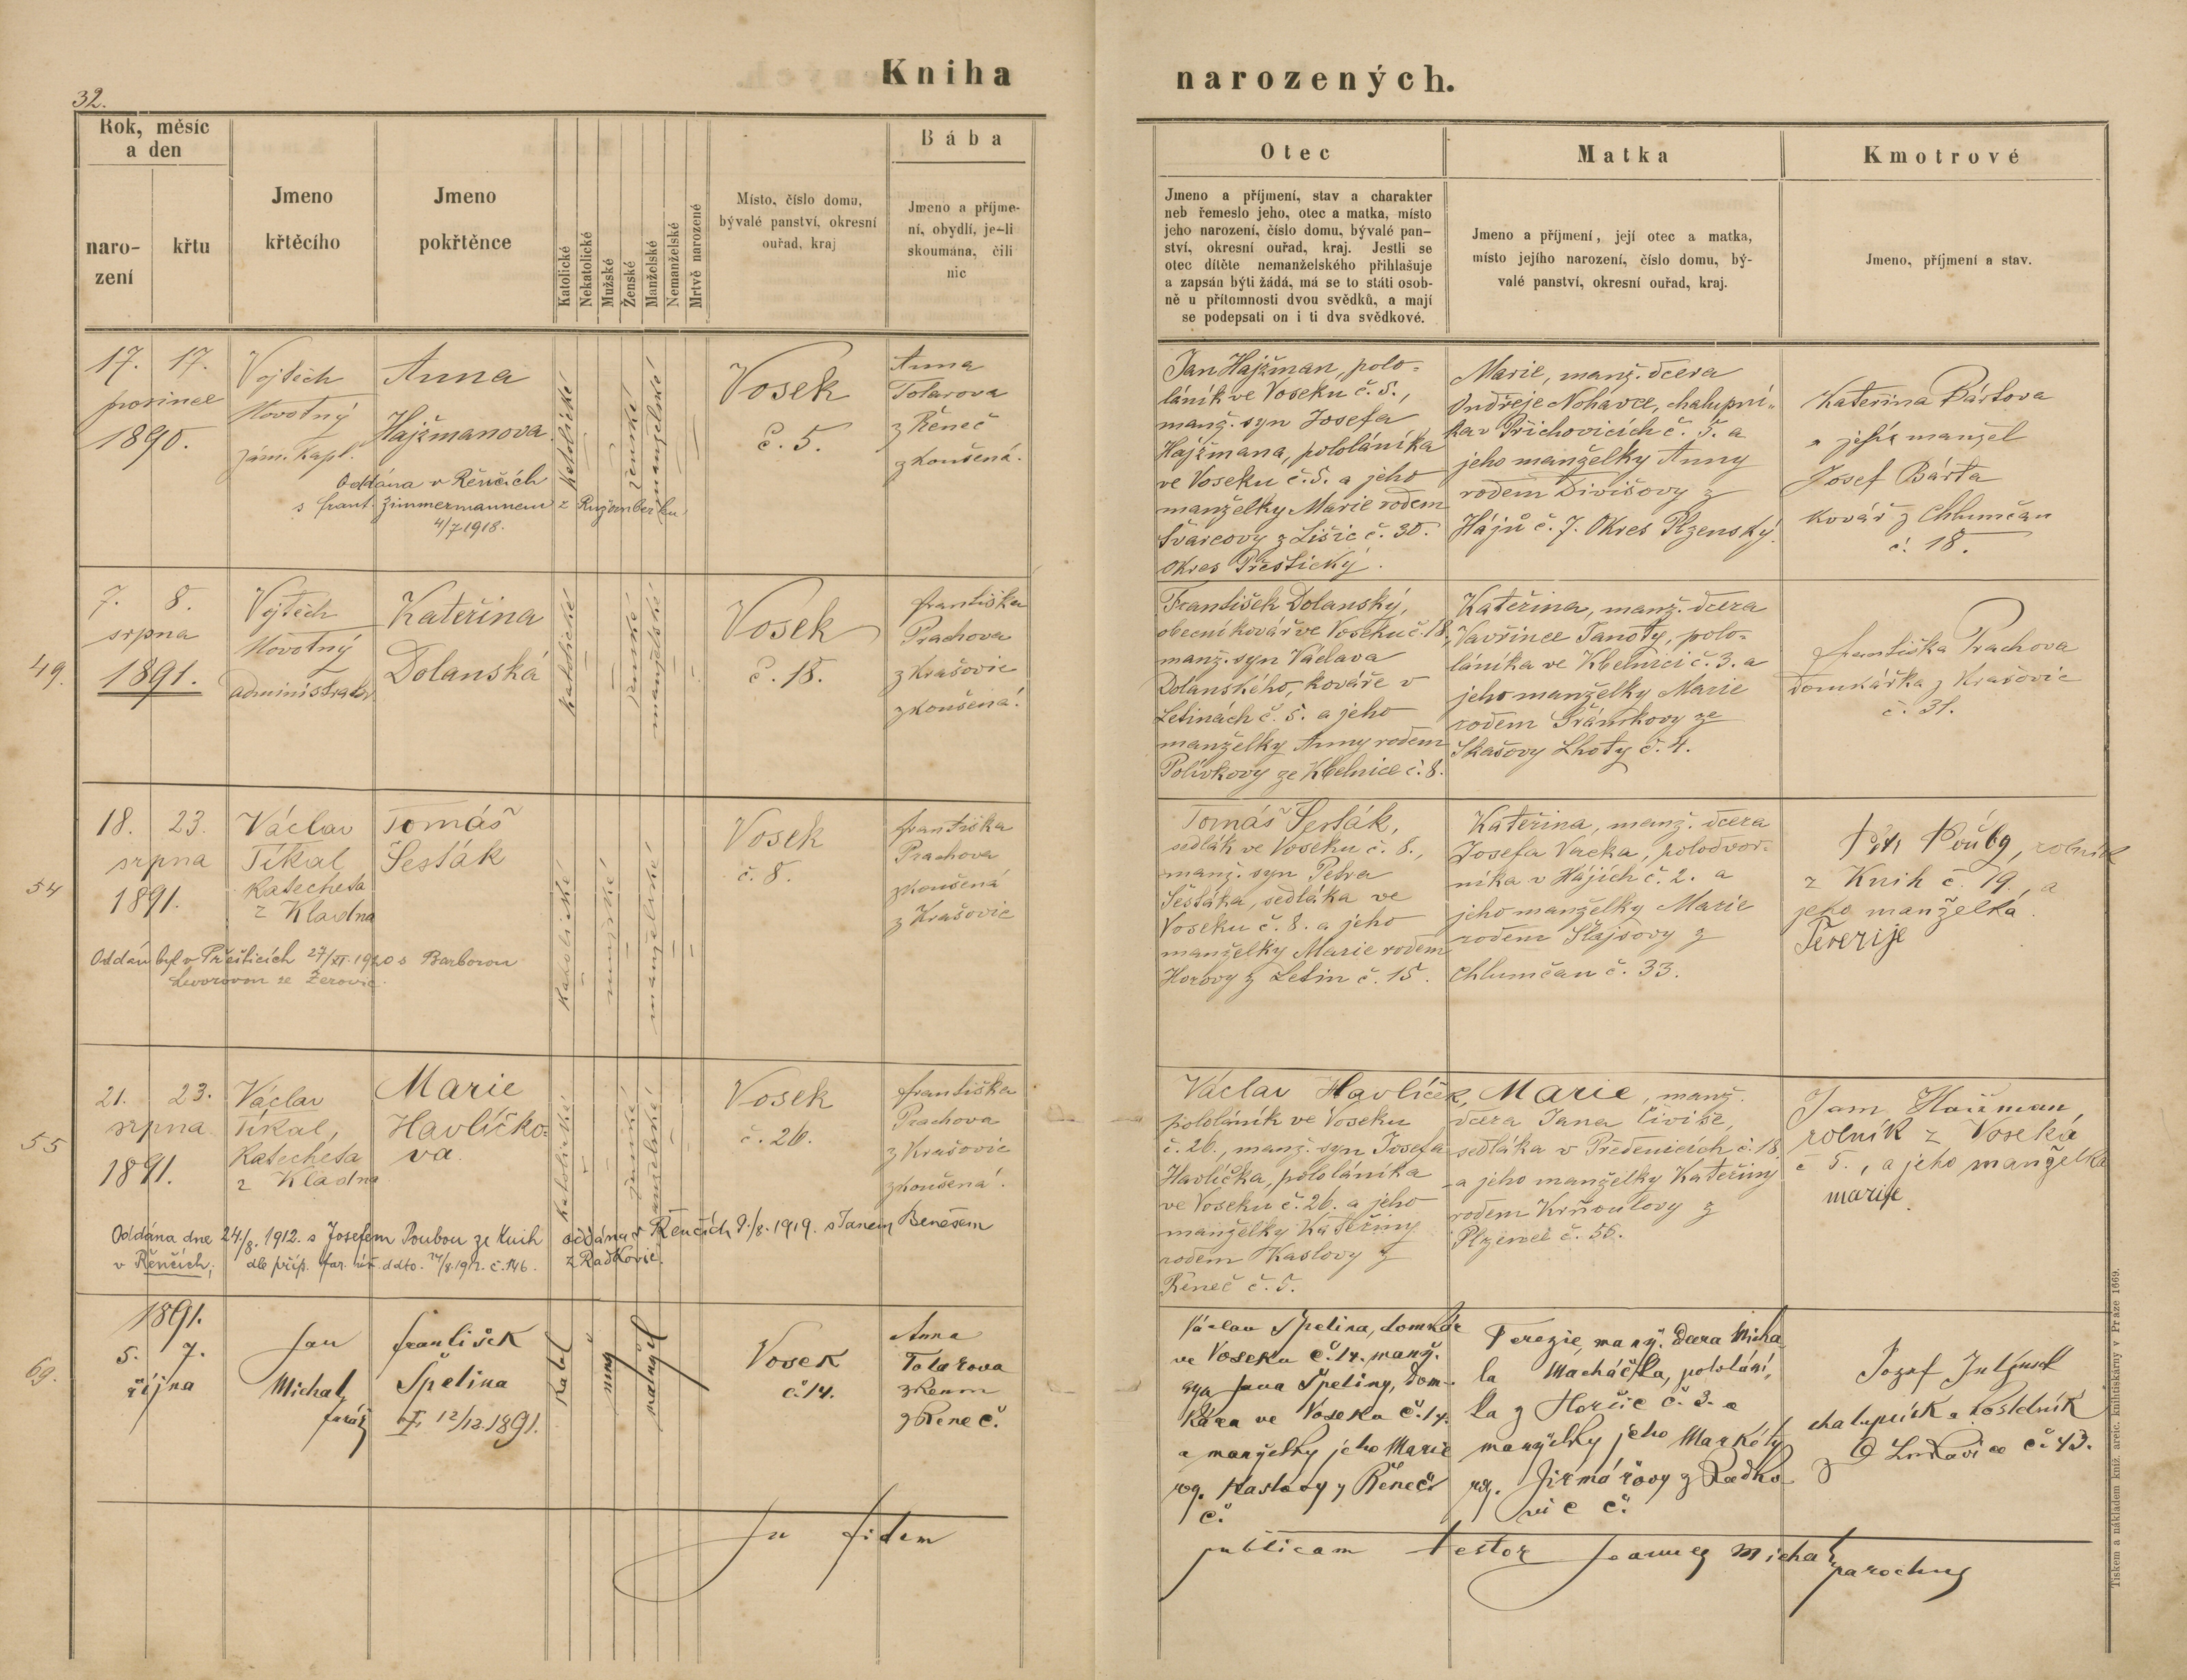 Kniha narozených.
32.
Rok, měsíc
a den
naro-
zení
křtu
Jmeno
křtěcího
Jmeno
pokřtěnce
Katolické
Nekatolické
Mužské
Ženské
Manželské
Nemanželské
Mrtvě narozené
Místo, číslo domu,
bývalé panství, okresní
ouřad, kraj
Bába
Jmeno a příjme-
ní, obydlí, je-li
skoumána, čili
nic
Otec
Jmeno a příjmení, stav a charakter
neb řemeslo jeho, otec a matka, místo
jeho narození, číslo domu, bývalé pan-
ství, okresní ouřad, kraj. Jestli se
otec dítěte nemanželského přihlašuje
a zapsán býti žádá, má se to státi osob-
ně u přítomnosti dvou svědků, a mají
se podepsati on i ti dva svědkové.
Matka
Jmeno a příjmení, její otec a matka,
místo jejího narození, číslo domu, bý-
valé panství, okresní ouřad, kraj.
Kmotrové
Jmeno, příjmení a stav.
17. 17.
prosince
1890.
Vojtěch
Novotný
zám. kapl.
Anna
Hajžmanova
Oddána v Řenčích
s Frant. Zimmermannem z Ružomberku
4/7 1918.
katolické
ženské
manželské
Vosek
č. 5.
Anna
Tolarova
z Řeneč
zkoušená.
Jan Hajžman, polo-
láník ve Voseku č. 5.,
manž. syn Josefa
Hájžmana, pololáníka
ve Voseku č. 5. a jeho
manželky Marie rodem
Švarcovy z Lišic č. 30.
Okres Přeštický.
Marie, manž. dcera
Ondřeje Nohavce, chalupní-
ka v Přichovicích č. 5. a
jeho manželky Anny
rodem Divišovy z
Hájů č. 7. Okres Plzenský.
Kateřina Bártova
a její manžel
Josef Bárta
kovář z Chlumčan
č. 18.
49.
7. 8.
srpna
1891.
Vojtěch
Novotný
administrator
Kateřina
Dolanská
katolické
ženské
manželské
Vosek
č. 18.
Františka
Prachova
z Krašovic
zkoušená.
František Dolanský,
obecní kovář ve Voseku č. 18,
manž. syn Václava
Dolanského, kováře v
Letinách č. 5. a jeho
manželky Anny rodem
Polívkovy ze Kbelnice č. 8.
Kateřina, manž. dcera
Vavřince Janoty, polo-
láníka ve Kbelnici č. 3. a
jeho manželky Marie
rodem Šrámkovy ze
Skašovy Lhoty č. 4.
Františka Prachova
domkářka z Krašovic
č. 31.
54
18. 23.
srpna
1891.
Václav
Tikal
Katecheta
z Kladna
Tomáš
Šesták
Oddán byl v Přešticích 27/XI 1920 s Barborou
ze Žerovic.
katolické
mužské
manželské
Vosek
č. 8.
Františka
Prachova
zkoušená
z Krašovic
Tomáš Šesták,
sedlák ve Voseku č. 8.,
manž. syn Petra
Šestáka, sedláka ve
Voseku č. 8. a jeho
manželky Marie rodem
Horovy z Letin č. 15.
Kateřina, manž. dcera
Josefa Vacka, polodvor-
níka v Hájích č. 2. a
jeho manželky Marie
rodem Šlajsovy z
Chlumčan č. 33.
rolník
z Knih č. 19., a
jeho manželka
Terezije
55
21. 23.
srpna
1891.
Václav
Tikal,
Katecheta
z Kladna
Marie
Havlíčko-
va.
Oddána dne 24/8. 1912. s Josefem Poubou ze Knih
v Řenčích, dle příp. far. úř. ddto. 24/8. 1912. č. 146.
oddána v Řenčích 9./8. 1919. s Janem Benešem
z Radkovic.
katolické
ženské
manželské
Vosek
č. 26.
Františka
Prachova
z Krašovic
zkoušená.
Václav Havlíček,
pololáník ve Voseku
č. 26., manž. syn Josefa
Havlíčka, pololáníka
ve Voseku č. 26. a jeho
manželky Kateřiny
rodem Kaslovy z
Řeneč č. 5.
Marie, manž.
dcera Jana Čiviše,
sedláka v Předenicích č. 18.
a jeho manželky Kateřiny
rodem Krňoulovy z
Plzenec č. 56.
Jan Hajžman,
rolník z Voseka
č 5., a jeho manželka
Marije.
69.
1891.
5. 7.
října
Jan
Michal,
farář
František
Špelina
† 12/12. 1891.
Katol
muž
manžel
Vosek
č. 14.
Anna
Tolarova
zkoum
z Řeneč.
Václav Špelina, domkář
ve Voseku č. 14. manž.
syn Jana Špeliny, dom-
káře ve Voseku č. 14.
a manželky jeho Marie
roz. Kaslovy z Řeneč
č.
Terezie, manž. dcera Micha
la Macháčka, pololání,
ka z Horčic č. 3. a
manželky jeho Markéty
roz. Jirmářovy z Radko
vic č.
Jozef
chalupník a hostinský
z Lukavice č. 43.
In fidem publicam testor Joannes Michal,
parochus
Tiskem a nákladem kníž. arcib. knihtiskárny v Praze 1669.